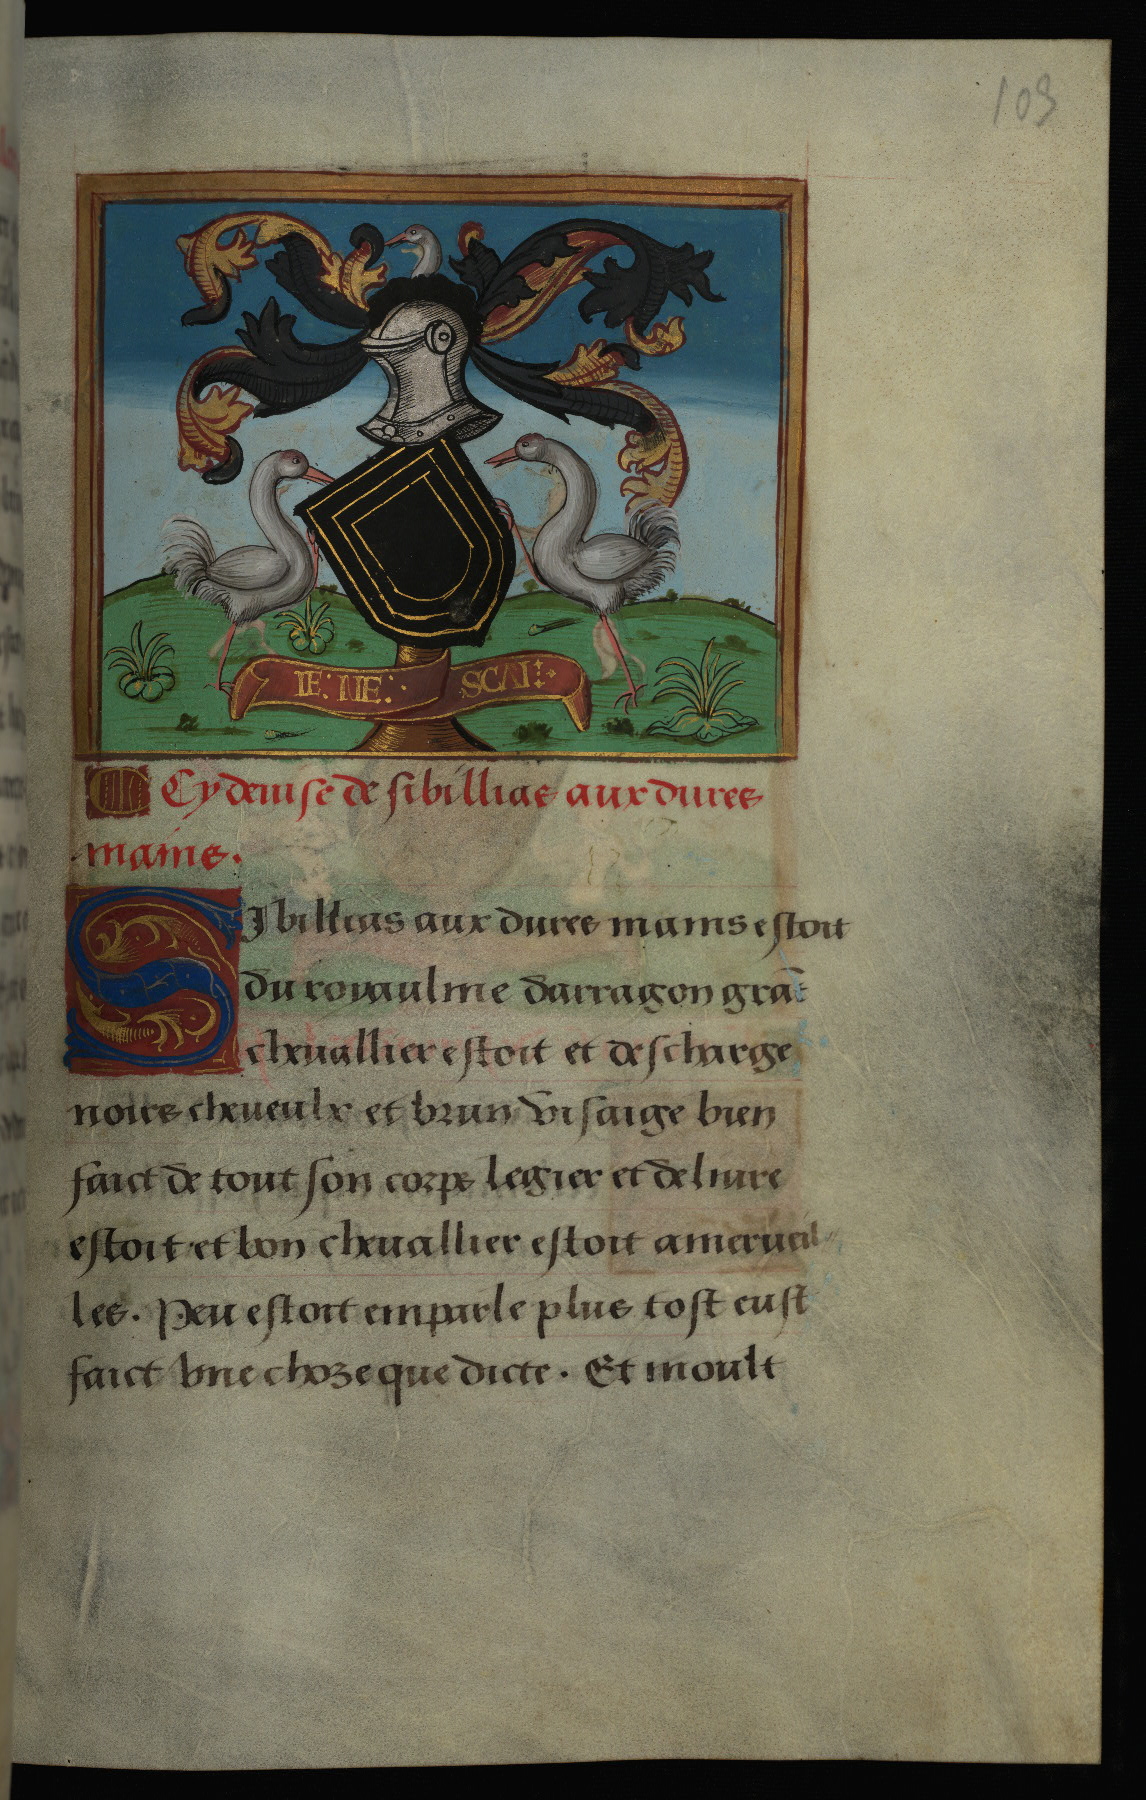 103
IE: NE: SCAI:
Cy deuise de sibillias aux dures
mains.
SIbillias aux dures mains estoit
du royaulme darragon grāt
cheuallier estoit et descharge
noirs cheueulx et brun visaige bien
faict de tout son corps legier et deliure
estoit et bon cheuallier estoit a merueil-
les. Peu estoit emparle plus tost eust
faict vne choze que dicte. Et moult